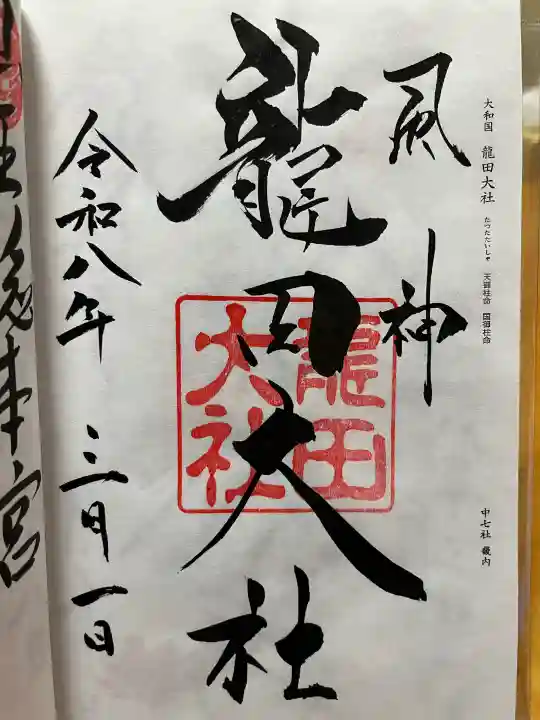 大和国 龍田大社 たつたたいしゃ 天御柱命 国御柱命
中七社 畿内
風神
龍田大社
龍田
大社
令和八年 三月一日